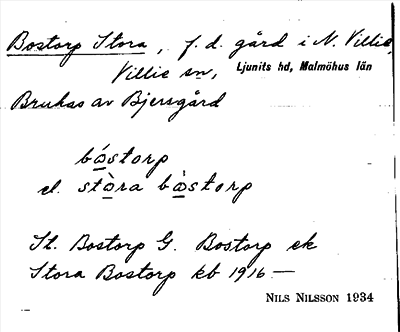 Bostorp Stora, f.d. gård i N. Villie,
Villie sn, Ljunits hd, Malmöhus län
Brukas av Bjersgård
bóstorp
el. stòra bòstorp
St. Bostorp G. Bostorp ek
Stora Bostorp kb 1916 —
NILS NILSSON 1934